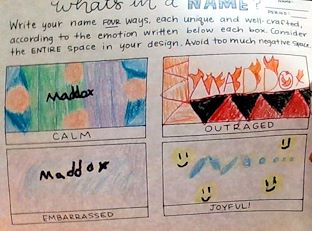 What's in a NAME?
NAME:
PERIOD:
Write your name FOUR ways, each unique and well-crafted,
according to the emotion written below each box. Consider
the ENTIRE space in your design. Avoid too much negative space.
Maddox
MADDOX
CALM
OUTRAGED
Maddox
EMBARRASSED
JOYFUL!